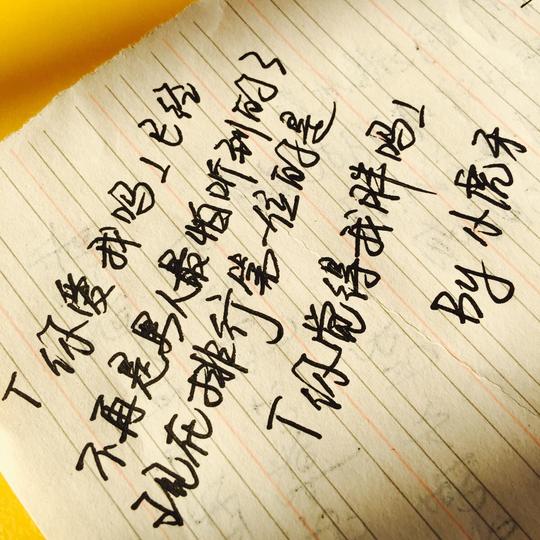 「你爱我吗」已经
不再是男人最怕听到的了
现在排行第一位的是
「你觉得我胖吗」
By 小虎子